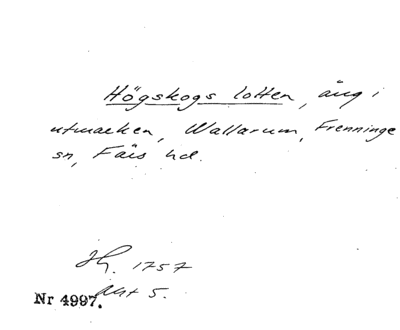 Högskogs lotten, äng i
utmarken, Wallarum, Frenninge
sn, Färs hd.
1757
Akt 5.
Nr 4997.